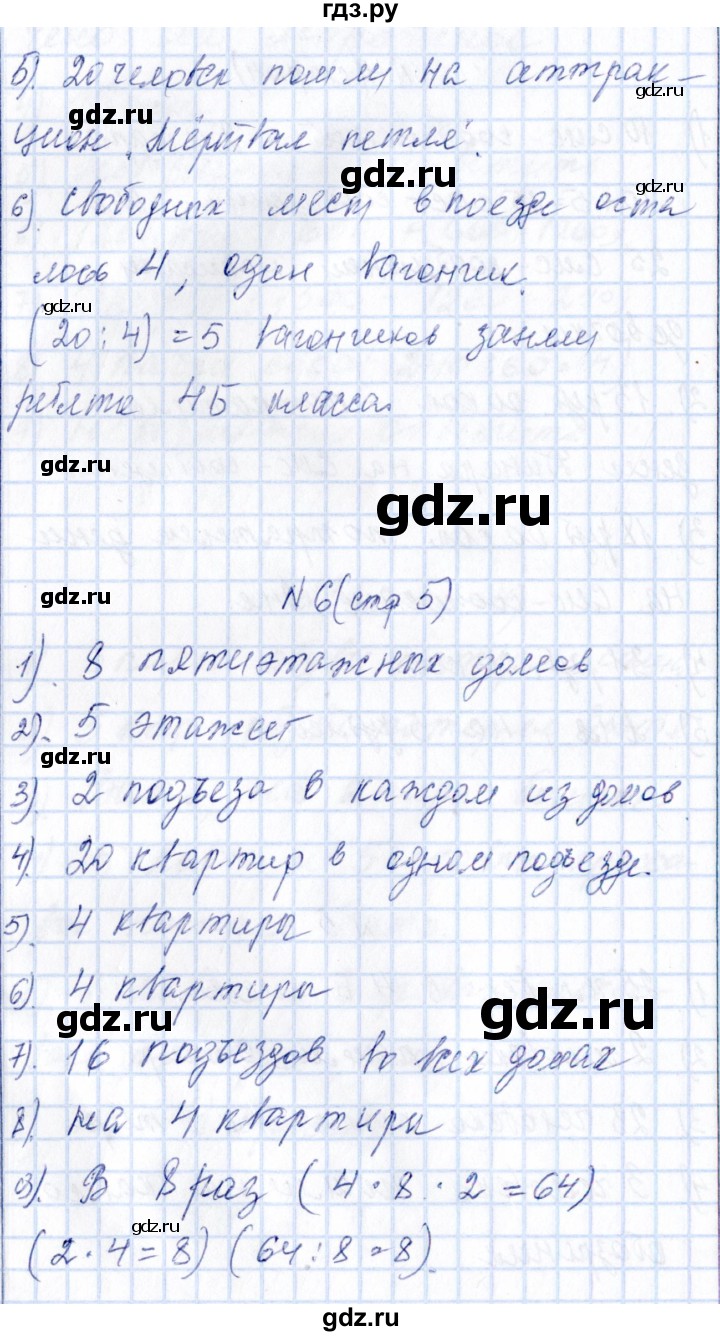 гдз.ру
5). 20 человек пошли на аттрак-
gdz.ru
gdz.ru
цион „Мёртвая петля".
gdz.ru
gdz.ru
6) Свободных мест в поезде оста
лось 4, один вагончик.
gdz.ru
(20:4) = 5 вагончиков заняли
ребята 4Б класса.
gdz.ru
gdz.ru
gdz.ru
N 6 (стр 5)
1). 8 пятиэтажных домов
2). 5 этажет
gdz.ru
gdz.ru
3) 2 подъеза в каждом из домов
4). 20 квартир в одном подъезде.
5). 4 квартиры
gdz.ru
6). 4 квартиры
gdz.ru
gdz.ru
7). 16 подъездов во всех домах
8). на 4 квартиры
9). В 8 раз (4 · 8 · 2 = 64)
gdz.ru
(2 · 4 = 8) (64 : 8 = 8).
gdz.ru
gdz.ru